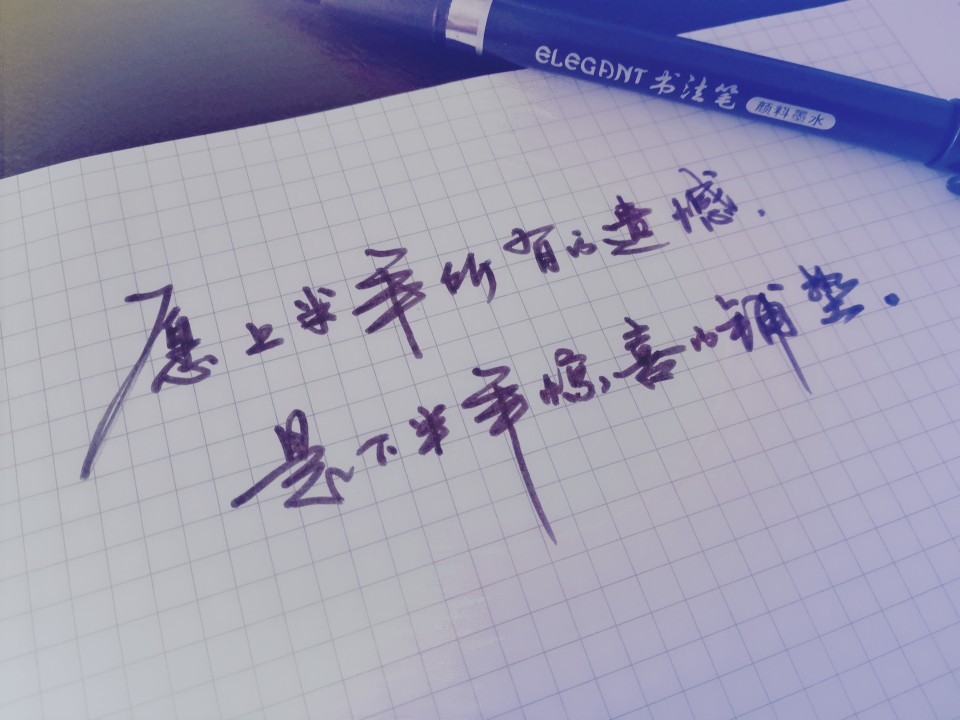 ELEGANT 书法笔 颜料墨水
愿上半年所有的遗憾.
是下半年惊喜的铺垫.